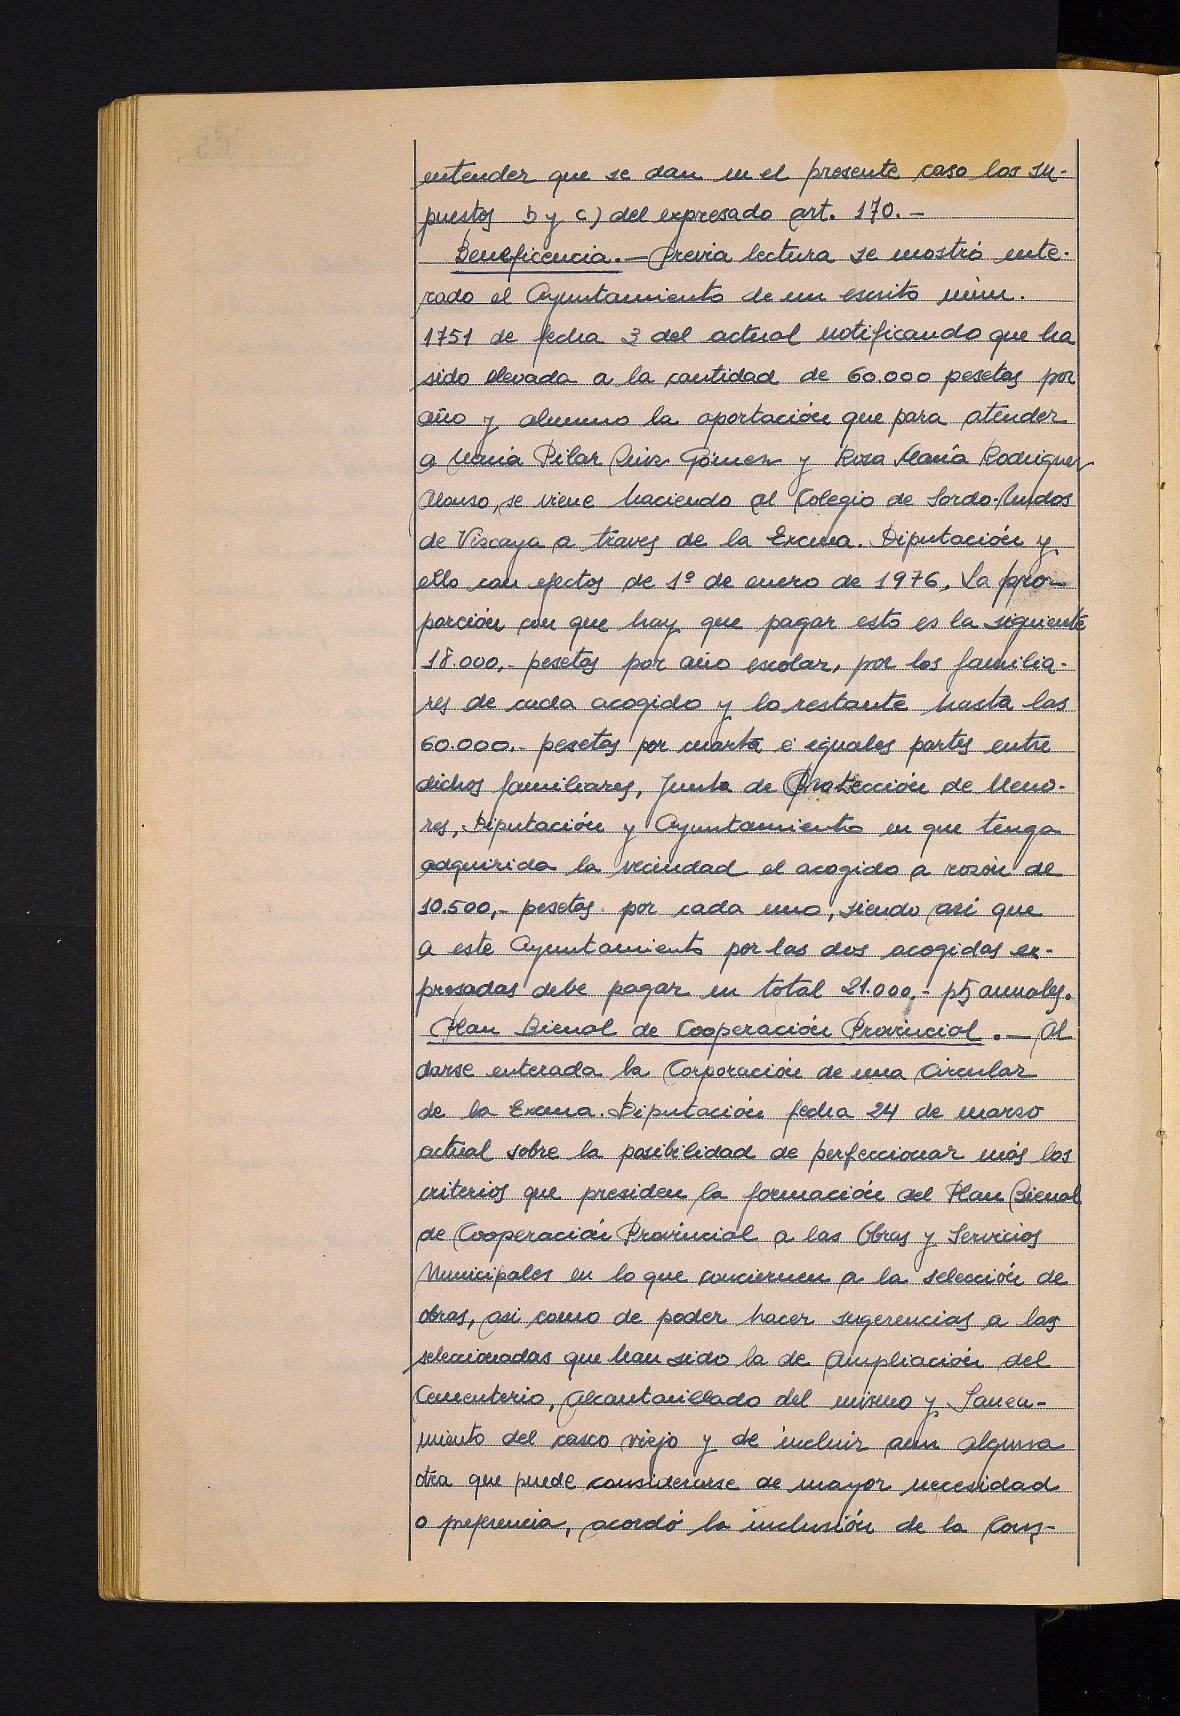 entender que se dan en el presente caso los su-
puestos b y c) del expresado art. 170.-
Beneficencia.- Previa lectura se mostró ente-
rado el Ayuntamiento de un escrito núm.
1751 de fecha 3 del actual notificando que ha
sido elevada a la cantidad de 60.000 pesetas por
año y alumno la aportación que para atender
a María Pilar Ruiz Gómez y Rosa María Rodriguez
Alonso, se viene haciendo al Colegio de Sordo-Mudos
de Vizcaya a traves de la Excma. Diputación y
ello con efectos de 1º de enero de 1976. La pro-
porción con que hay que pagar esto es la siguiente
18.000,- pesetas por año escolar, por los familia-
res de cada acogido y lo restante hasta las
60.000.- pesetas por cuarta e iguales partes entre
dichos familiares, Junta de Protección de Meno-
res, Diputación y Ayuntamiento en que tenga
adquirida la vecindad el acogido a razón de
10.500,- pesetas por cada uno, siendo asi que
a este Ayuntamiento por las dos acogidas ex-
presadas debe pagar en total 21.000,- pts anuales.
Plan Bienal de Cooperación Provincial.- Al
darse enterada la Corporación de una Circular
de la Excma. Diputación fecha 24 de marzo
actual sobre la posibilidad de perfeccionar más los
criterios que presiden la formación del Plan Bienal
de Cooperación Provincial a las Obras y Servicios
Municipales en lo que conciernen a la selección de
obras, asi como de poder hacer sugerencias a las
seleccionadas que han sido la de Ampliación del
Cementerio, Alcantarillado del mismo y Sanea-
miento del casco viejo y de incluir aun alguna
otra que puede considerarse de mayor necesidad
o preferencia, acordó la inclusión de la Cons-